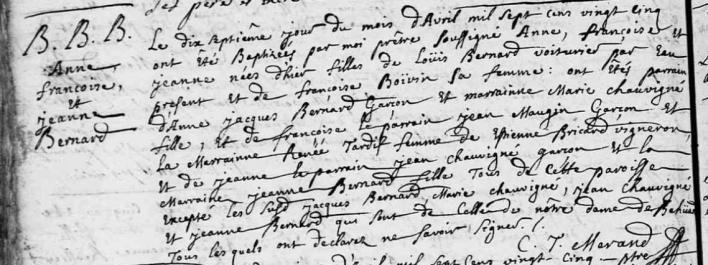 B. B. B.
Anne
francoise,
et
jeanne
Bernard
Le dix septiême jour du mois d'Avril mil sept cens vingt cinq
ont êté Baptizées par moi prêtre soussigné Anne, françoise et
jeanne nées d'hier filles de Loüis Bernard voiturier par Eau
présent et de françoise Boivin sa femme : ont êtés parrain
d'Anne jacques Bernard Garçon et marrainne Marie chauvigné
fille, et de françoise le parrain jean Maugin Garçon et
la Marrainne Renée Tardif femme de Etienne Bricard vigneron,
et de jeanne le parrain jean chauvigné garçon et la
Marraine jeanne Bernard fille Tous de Cette paroisse
Excepté les susd jacques Bernard, Marie chauvigné, jean chauvigné
et jeanne Bernard qui sont de Celle de nôtre dame de
Tous lesquels ont declarez ne savoir signer.
C. T. Merand
mil sept Cens vingt-Cinq